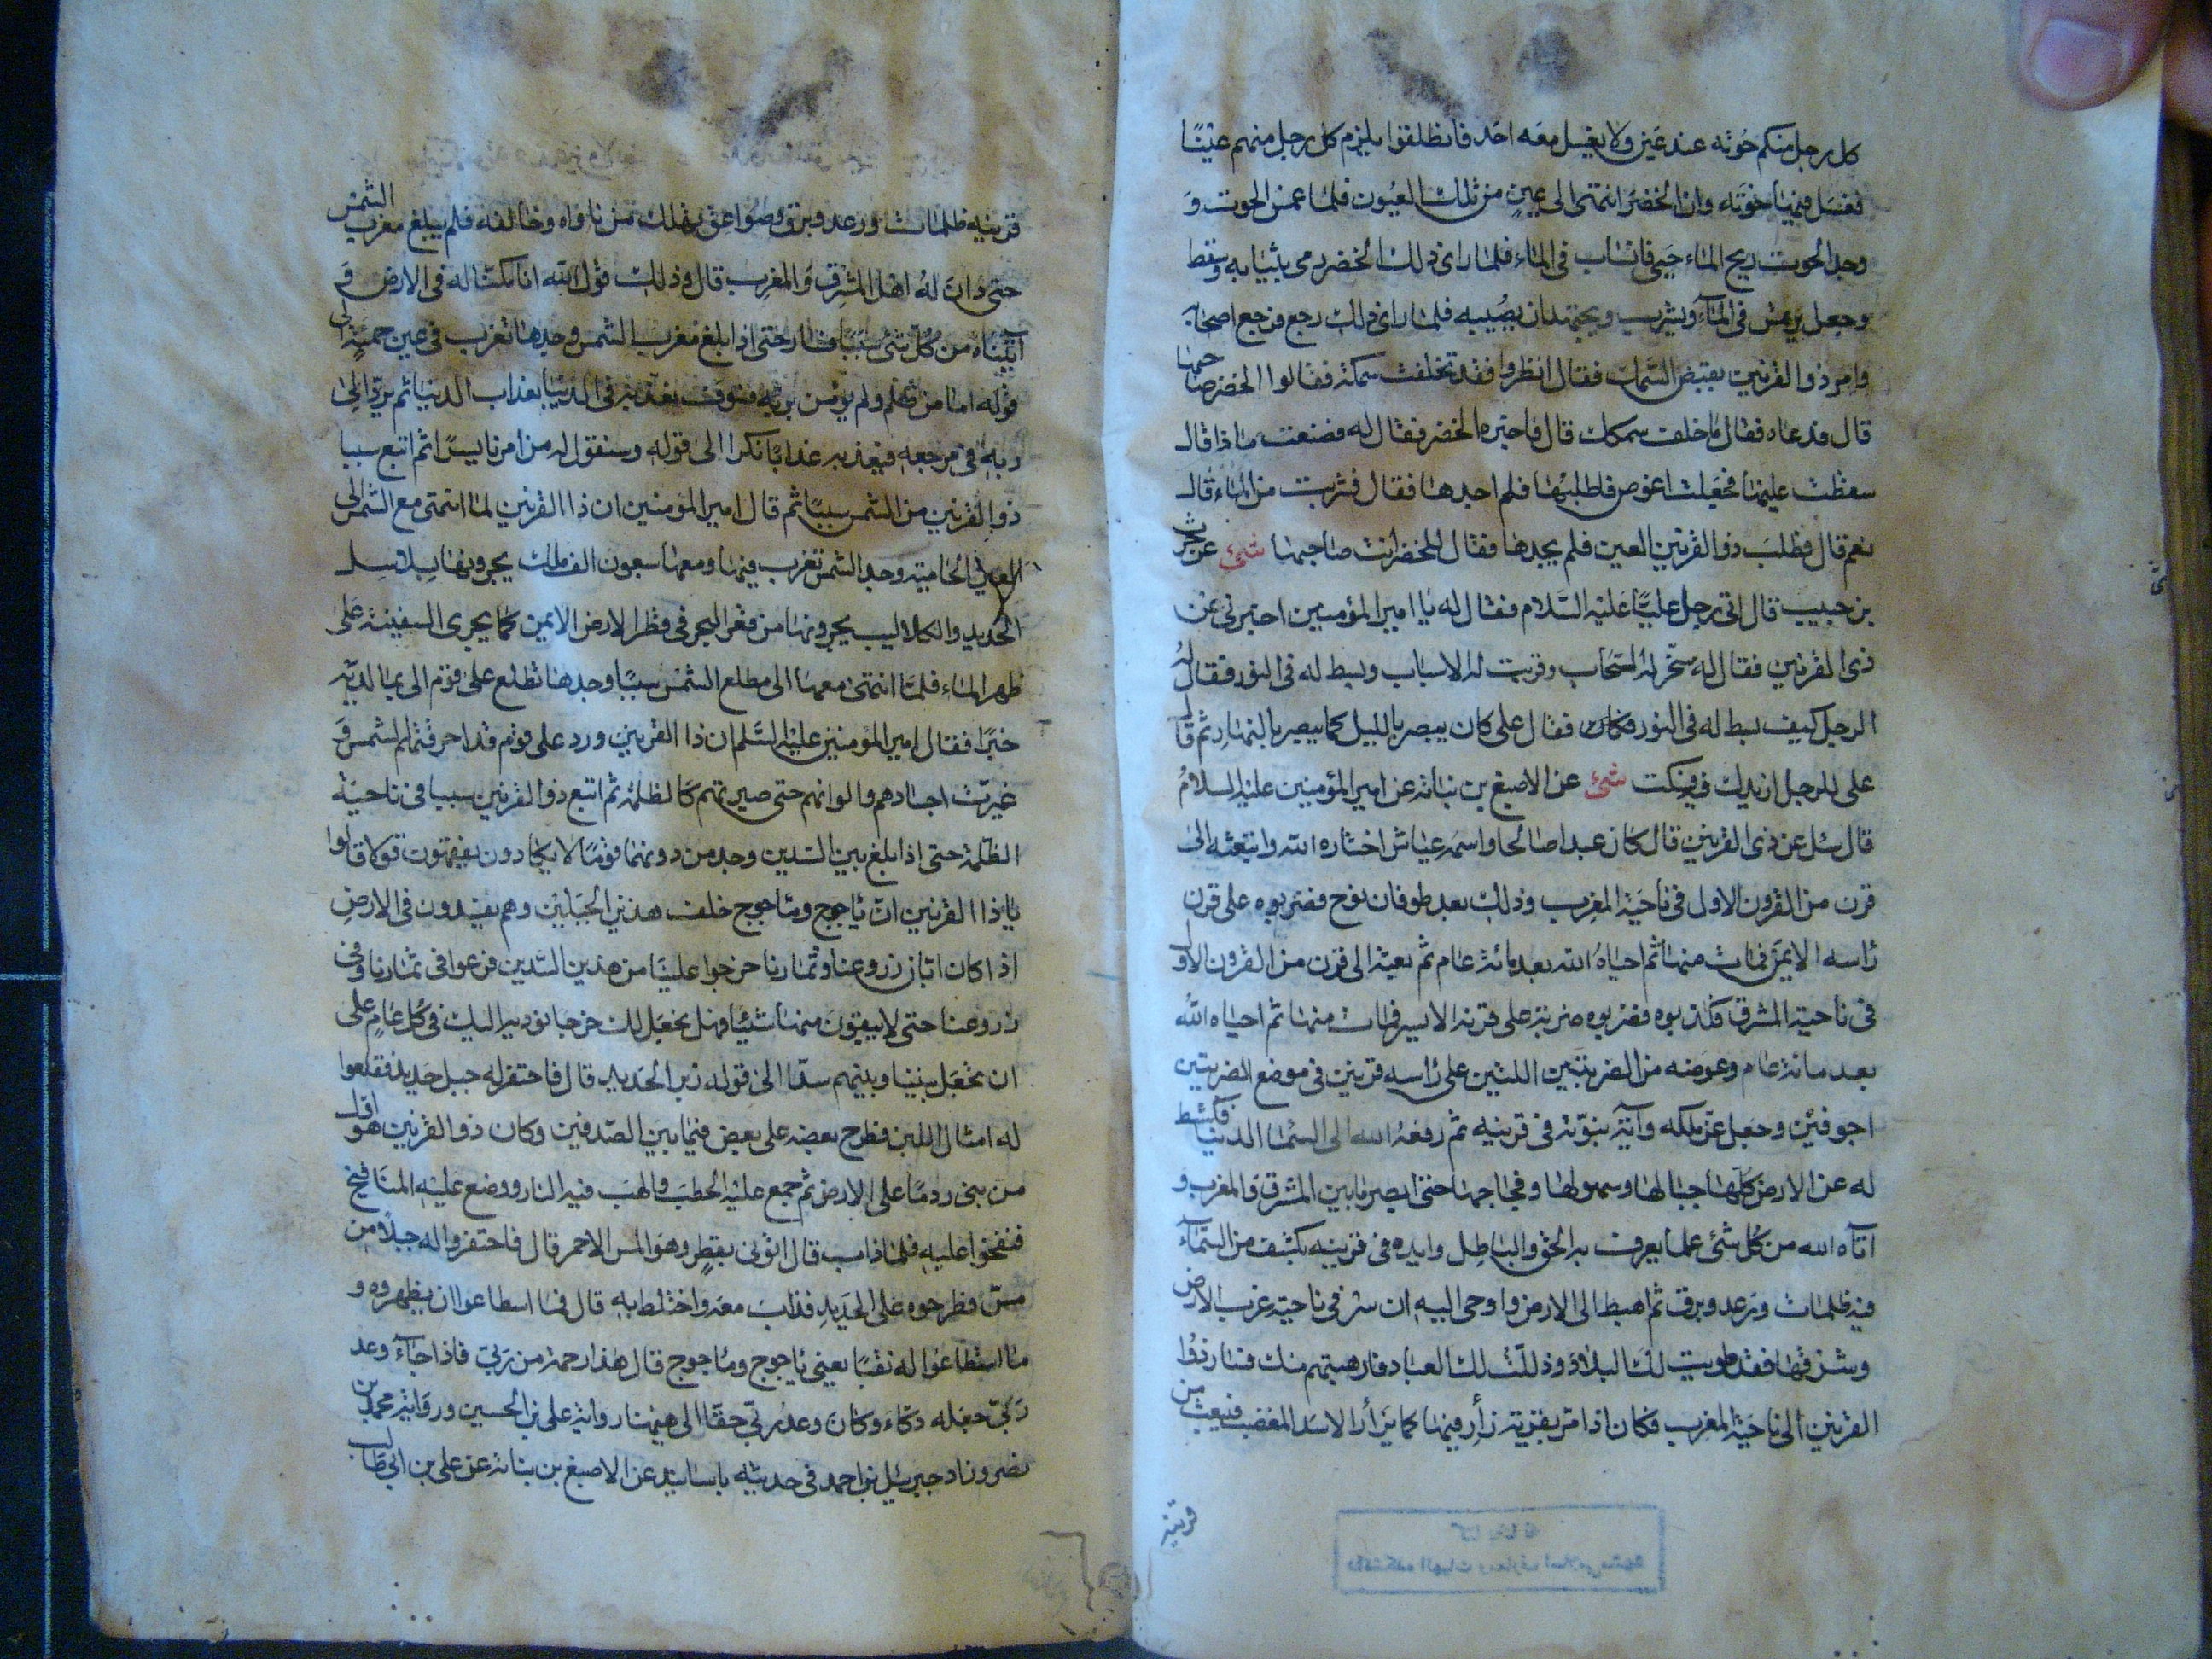 كل رجل منكم حوته عند عين ولا يغسل معه احد فانطلقوا يلزم كل رجل منهم عينا
فغسل فيها حوته وان الخضر انتهى الى عين من تلك العيون فلما غمس الحوت و
وجد الحوت ريح الماء حيي فانساب في الماء فلما راى ذلك الخضر رمى بثيابه وسقط
وجعل يرتمس في الماء ويشرب ويجتهد ان يصيبه فلما راى ذلك رجع فرجع اصحابه
وامر ذو القرنين بقبض السمك فقال انظروا فقد تخلفت سمكة فقالوا الخضر صاحبها
قال فدعاه فقال ما خلف سمكك قال فاخبره الخضر فقال له فصنعت ماذا قال
سقطت عليها فجعلت اغوص فاطلبها فلم اجدها فقال فشربت من الماء قال
نعم قال فطلب ذو القرنين العين فلم يجدها فقال للخضر انت صاحبها شئ عن
بن حبيب قال اتى رجل عليا عليه السلام فقال له يا امير المؤمنين اخبرنى عن
ذى القرنين فقال له سخر له السحاب وقربت له الاسباب وبسط له فى النور فقال له
الرجل كيف بسط له فى النور فقال على كان يبصر بالليل كما يبصر بالنهار ثم قال
على للرجل ازيدك فيه فسكت شئ عن الاصبغ بن نباته عن امير المؤمنين عليه السلام
قال سئل عن ذى القرنين قال كان عبدا صالحا واسمه عياش اختاره الله وابتعثه الى
قرن من القرون الاول فى ناحية المغرب وذلك بعد طوفان نوح فضربوه على قرن
راسه الايمن فمات منها ثم احياه الله بعد مائة عام ثم بعثه الى قرن من القرون الاول
فى ناحية المشرق فكذبوه فضربوه ضربة على قرنه الايسر فمات منها ثم احياه الله
بعد مائة عام وعوضه من الضربتين اللتين على راسه قرنين فى موضع الضربتين
اجوفين وجعل عز ملكه وآية نبوته فى قرنيه ثم رفعه الله الى السماء الدنيا فكشط
له عن الارض كلها جبالها وسهولها وفجاجها حتى ابصر ما بين المشرق والمغرب و
آتاه الله من كل شئ علما يعرف به الحق والباطل وايده فى قرنيه بكسف من السماء
فيه ظلمات ورعد وبرق ثم اهبط الى الارض واوحى اليه ان سر فى ناحية غرب الارض
وشرقها فقد طويت لك البلاد وذللت لك العباد فارهبتهم منك فسار ذو
القرنين الى ناحية المغرب فكان اذا مر بقرية زأر فيها كما يزأر الاسد المغضب فينبعث من
قرنيه
قرنيه ظلمات ورعد وبرق وصواعق يهلك من ناواه وخالفه فلم يبلغ مغرب الشمس
حتى دان له اهل المشرق والمغرب قال وذلك قول الله انا مكنا له فى الارض و
آتيناه من كل شئ سببا فسار حتى اذا بلغ مغرب الشمس وجدها تغرب فى عين حمئة الى
قوله اما من ظلم ولم يؤمن بربه فسوف نعذبه فى الدنيا بعذاب الدنيا ثم يرد الى
ربه فى مرجعه فيعذبه عذابا نكرا الى قوله وسنقول له من امرنا يسرا ثم اتبع سببا
ذو القرنين من الشمس سببا ثم قال امير المؤمنين ان ذا القرنين لما انتهى مع الشمس الى
العين الحامية وجد الشمس تغرب فيها ومعها سبعون الف ملك يجرونها بسلاسل
الحديد والكلاليب يجرونها من قعر البحر فى قطر الارض الايمن كما يجرى السفينة على
ظهر الماء فلما انتهى معها الى مطلع الشمس سببا وجدها تطلع على قوم الى بما لديه
خبرا فقال امير المؤمنين عليه السلم ان ذا القرنين ورد على قوم قد احرقتهم الشمس و
غيرت اجسادهم والوانهم حتى صيرتهم كالظلمة ثم اتبع ذو القرنين سببا فى ناحية
الظلمة حتى اذا بلغ بين السدين وجد من دونهما قوما لا يكادون يفقهون قولا قالوا
يا ذا القرنين ان ياجوج وماجوج خلف هذين الجبلين وهم يفسدون فى الارض
اذا كان ابان زروعنا وثمارنا خرجوا علينا من هذين السدين فرعوا فى ثمارنا وفى
زروعنا حتى لا يبقون منها شيئا فهل نجعل لك خرجا نؤديه اليك فى كل عام على
ان تجعل بيننا وبينهم سدا الى قوله زبر الحديد قال فاحتفر له جبل حديد فقلعوا
له امثال اللبن فطرح بعضه على بعض فيما بين الصدفين وكان ذو القرنين هو اول
من بنى ردما على الارض ثم جمع عليه الحطب والهب فيه النار ووضع عليه المنافخ
فنفخوا عليه فلما ذاب قال اتونى بقطر وهو المس الاحمر قال فاحتفروا له جبلا من
مس فطرحوه على الحديد فذاب معه واختلط به قال فما اسطاعوا ان يظهروه و
ما استطاعوا له نقبا يعنى ياجوج وماجوج قال هذا رحمة من ربى فاذا جاء وعد
ربى جعله دكاء وكان وعد ربى حقا الى هيهنا رواية على بن الحسين ورواية محمد بن
نصر وزاد جبرئيل بن احمد فى حديثه باسانيد عن الاصبغ بن نباته عن على بن ابى طالب